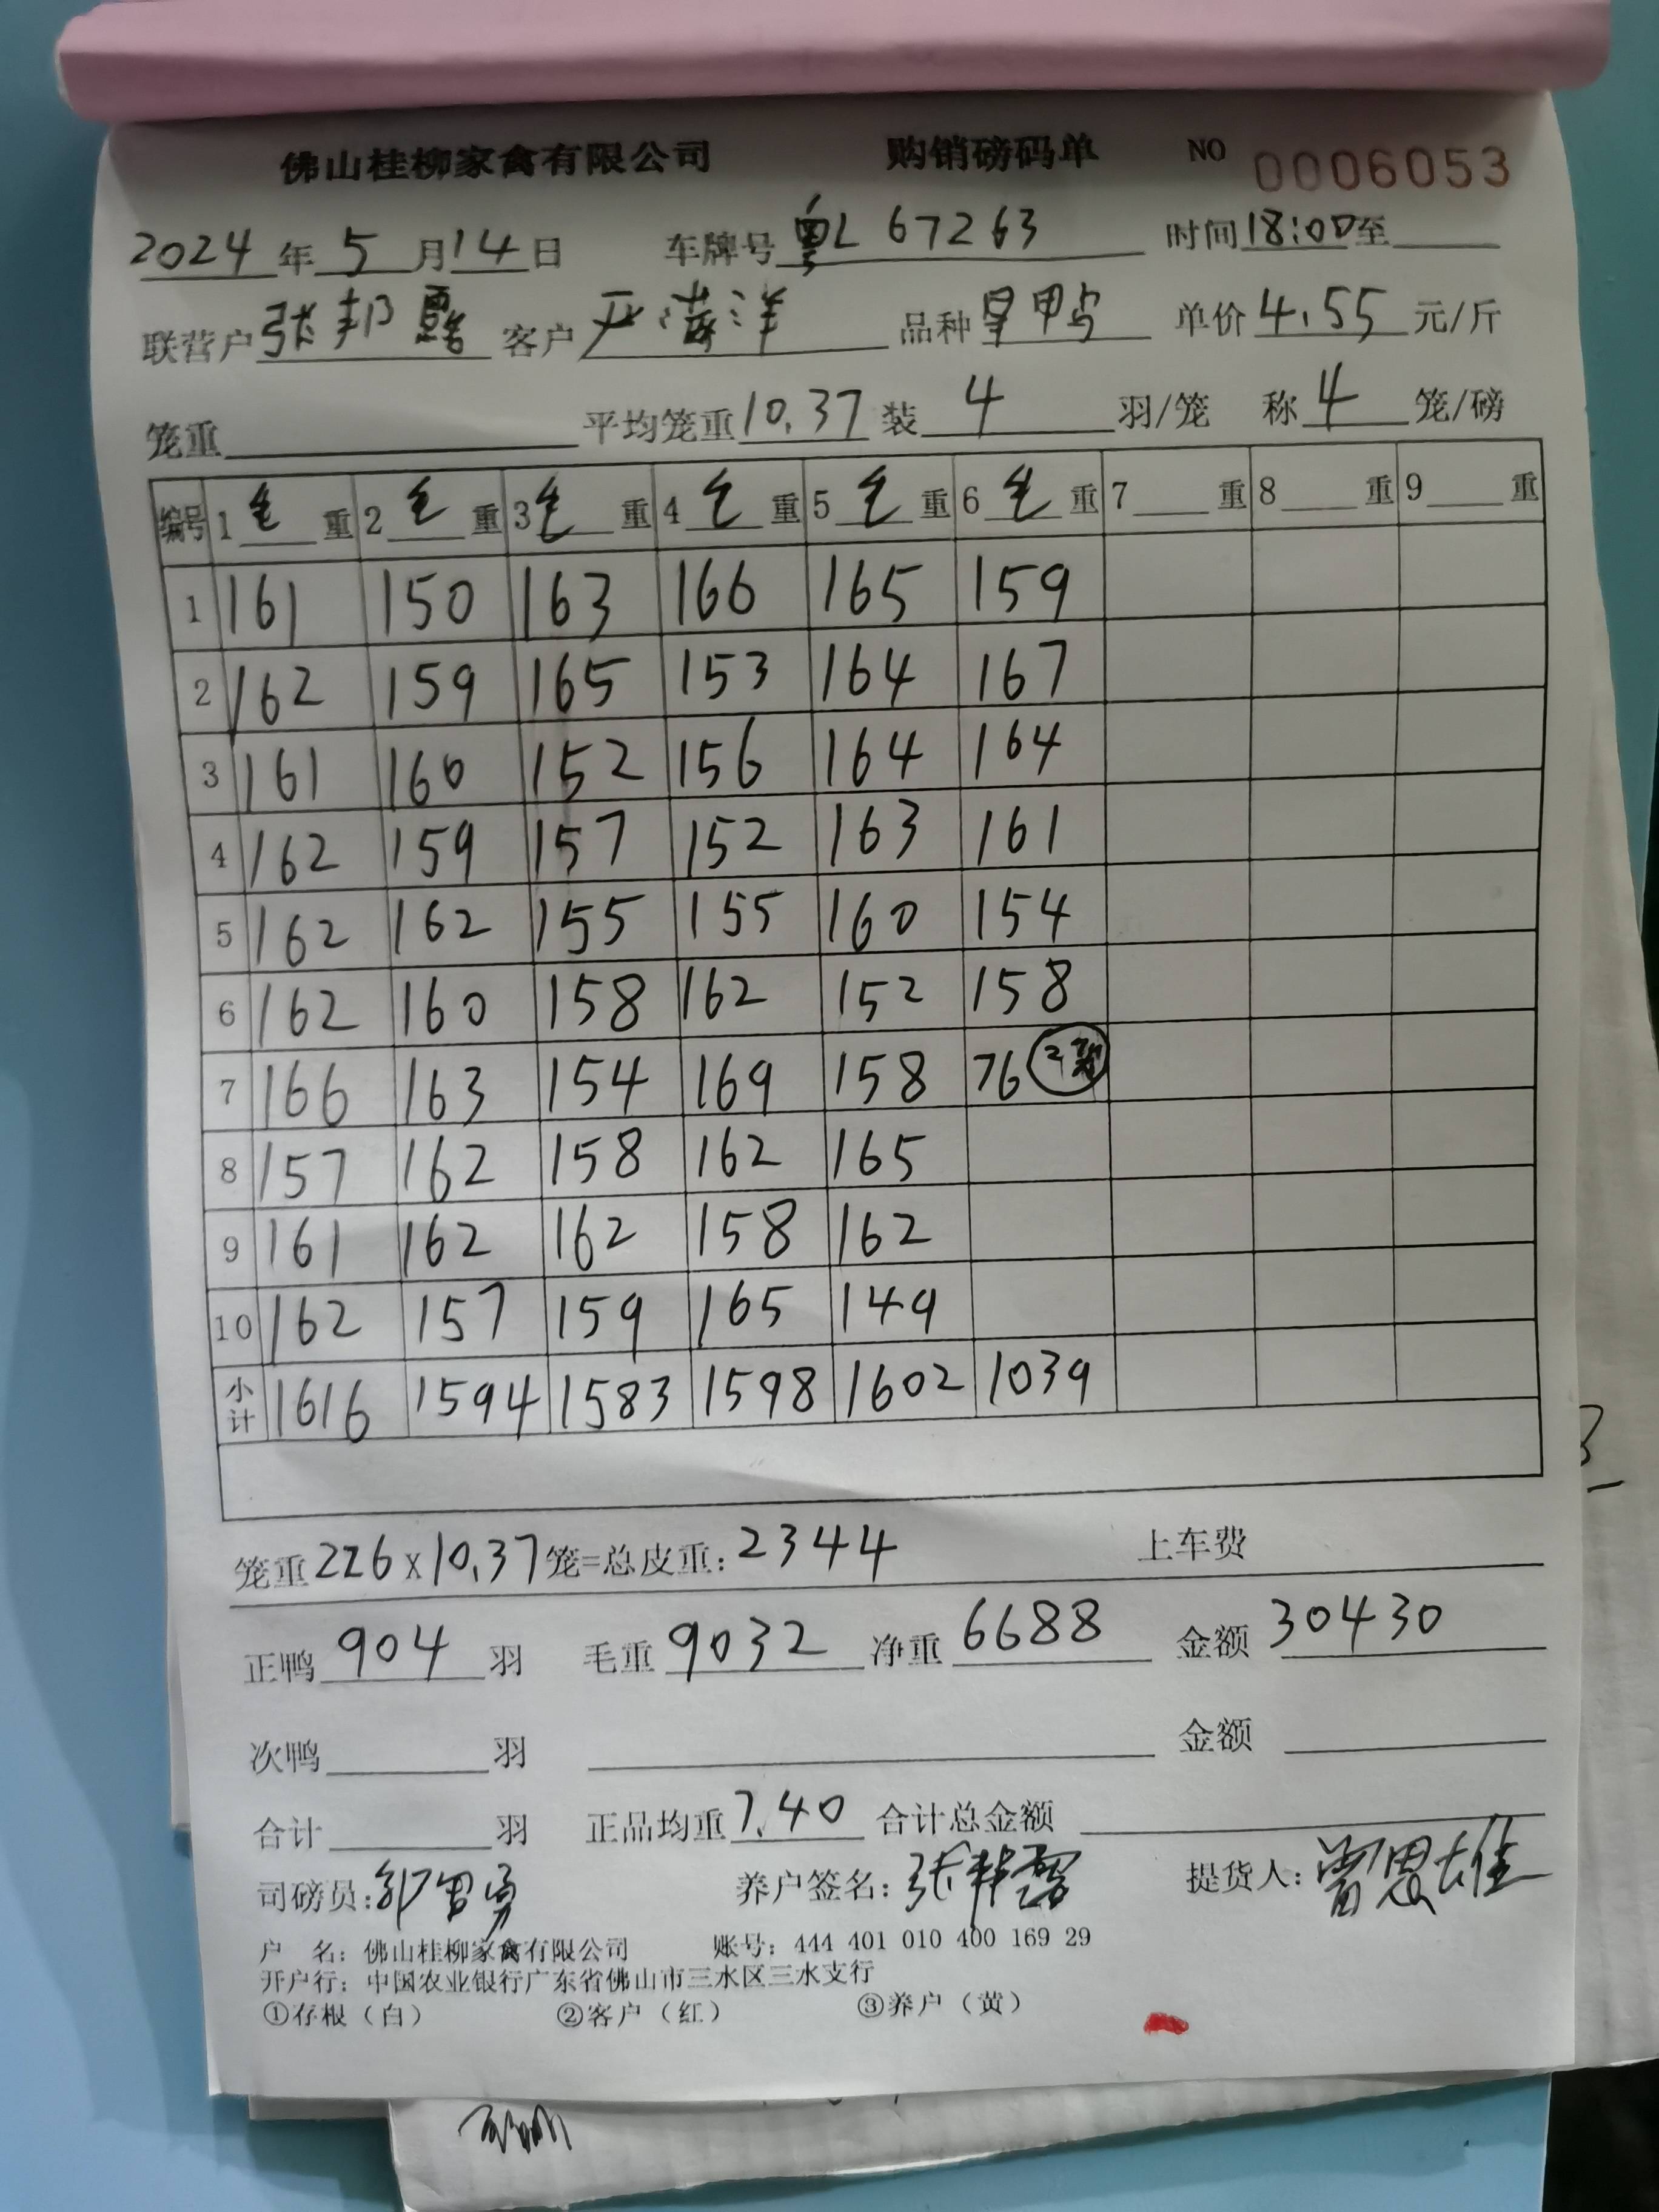 佛山桂柳家禽有限公司 购销磅码单 NO 0006053
2024年5月14日 车牌号 粤L 67263 时间18:00至
联营户 张邦 客户 严海洋 品种 单价4.55元/斤
笼重 平均笼重10.37 装4羽/笼 称4笼/磅
编号 1毛重 2毛重 3毛重 4毛重 5毛重 6毛重 7重 8重 9重
1 161 150 163 166 165 159
2 162 159 165 153 164 167
3 161 160 152 156 164 164
4 162 159 157 152 163 161
5 162 162 155 155 160 154
6 162 160 158 162 152 158
7 166 163 154 169 158 76 2
8 157 162 158 162 165
9 161 162 162 158 162
10 162 157 159 165 149
小计 1616 1594 1583 1598 1602 1039
笼重226x10.37笼=总皮重:2344 上车费
正鸭904羽 毛重9032 净重6688 金额30430
次鸭 羽 金额
合计 羽 正品均重7.40 合计总金额
司磅员: 养户签名: 张 提货人: 雷恩雄
户 名: 佛山桂柳家禽有限公司 账号: 444 401 010 400 169 29
开户行: 中国农业银行广东省佛山市三水区三水支行
①存根(白) ②客户(红) ③养户(黄)